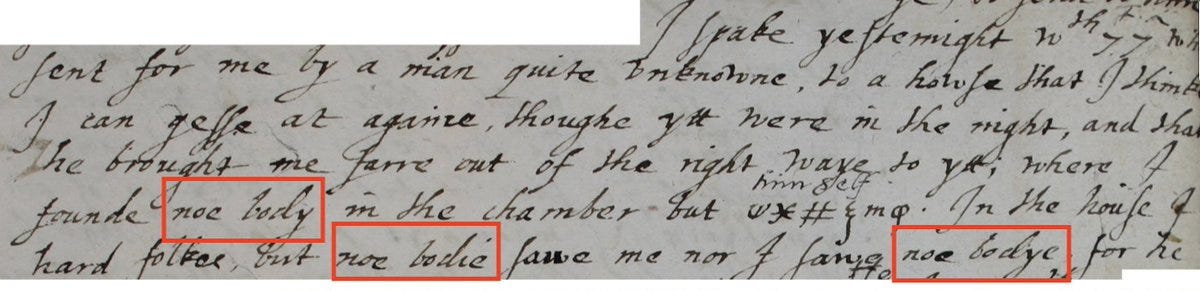 I spake yesternight wth 77
sent for me by a man quite vnknowne, to a howse that I thinke
I can gesse at againe, thoughe ytt were in the night, and tha
he brought me farre out of the right waye to ytt; where I
himself
founde noe body in the chamber but . In the house I
hard folkes, but noe bodie sawe me nor I sawe noe bodye, for he